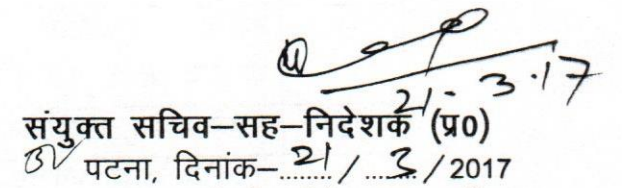 21-3-17
संयुक्त सचिव–सह–निदेशक (प्र0)
पटना, दिनांक–21/3/2017